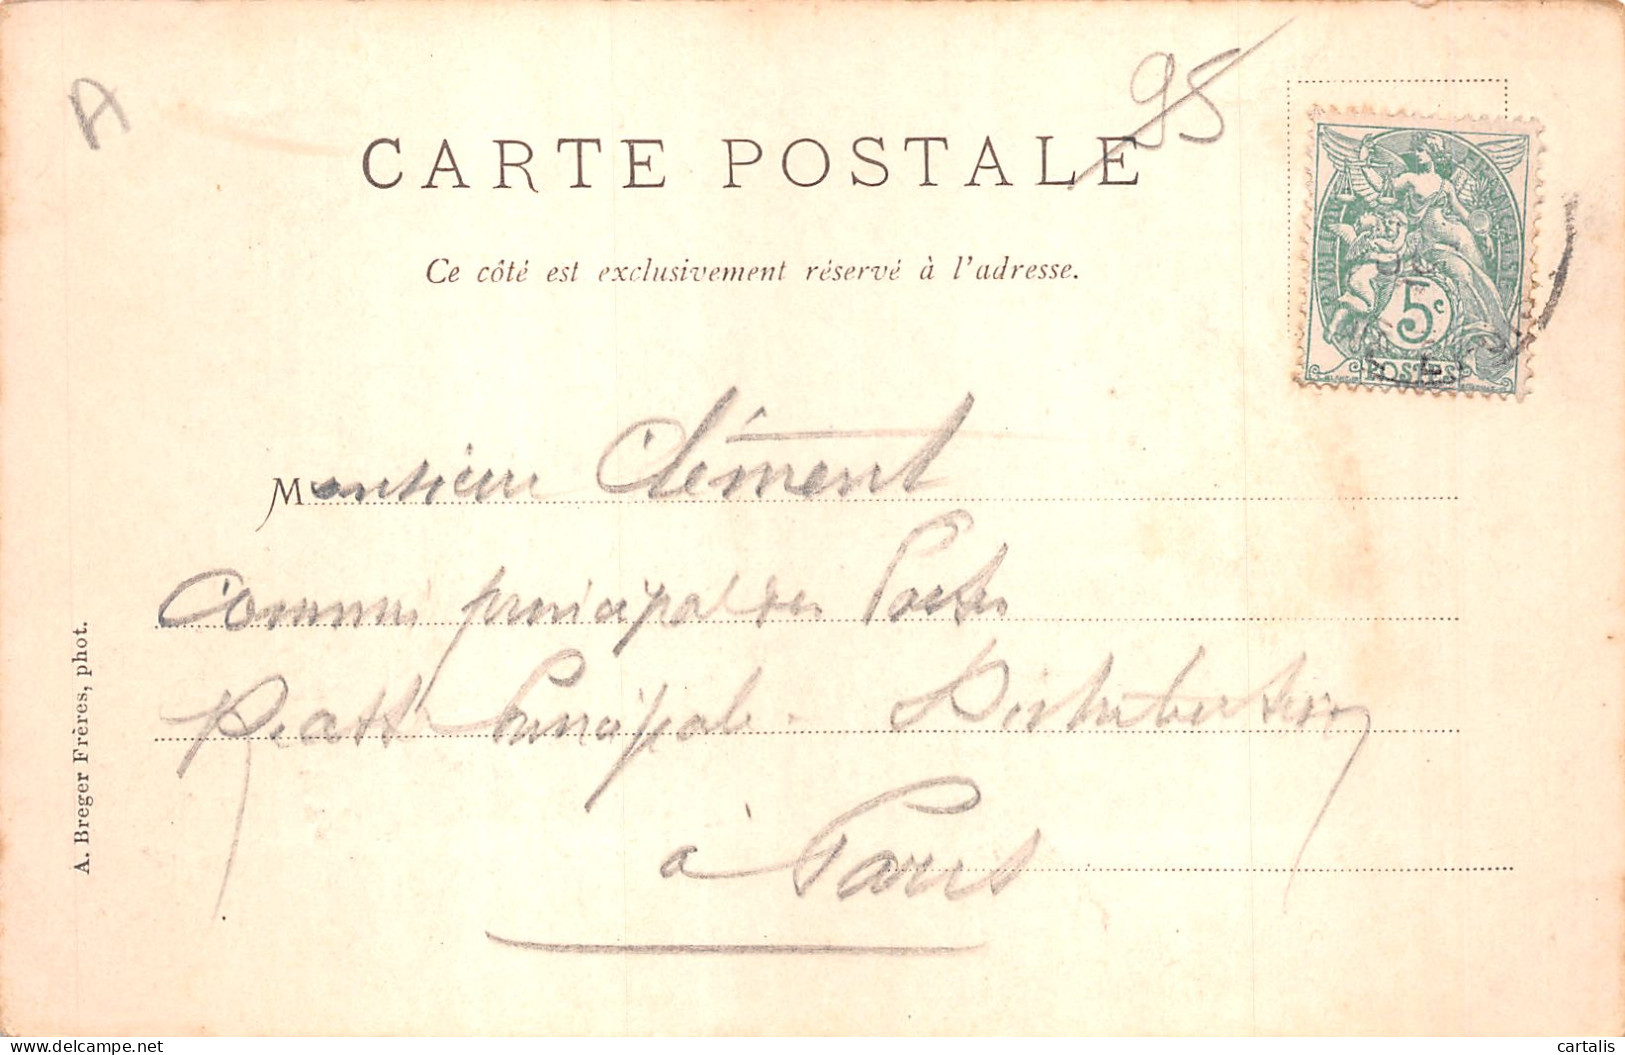 A
95
CARTE POSTALE
Ce côté est exclusivement réservé à l'adresse.
RÉPUBLIQUE FRANÇAISE
5c
POSTES
Monsieur Clément
Commis principal des Postes
Principale Distribution
à Paris
A. Breger Frères, phot.
delcampe.net
cartalis